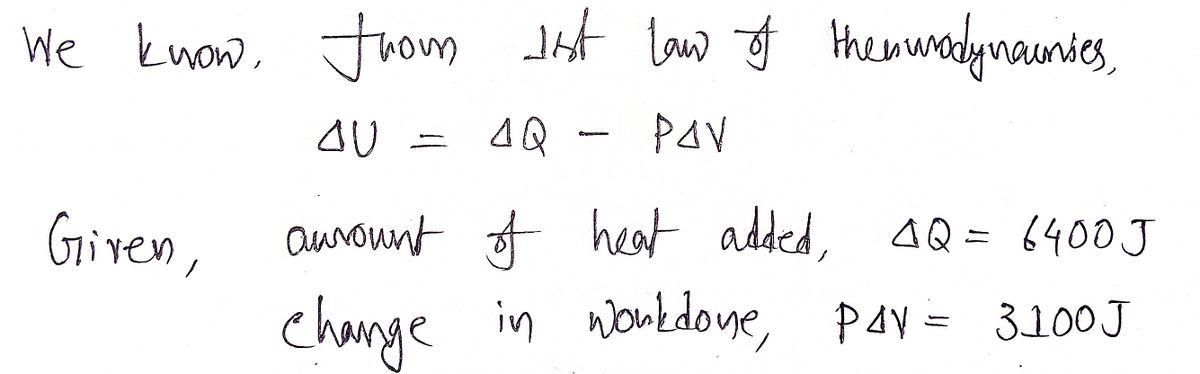 We know, from 1st law of thermodynamics,
ΔU = ΔQ - PΔV
Given, amount of heat added, ΔQ = 6400J
change in workdone, PΔV = 3100J